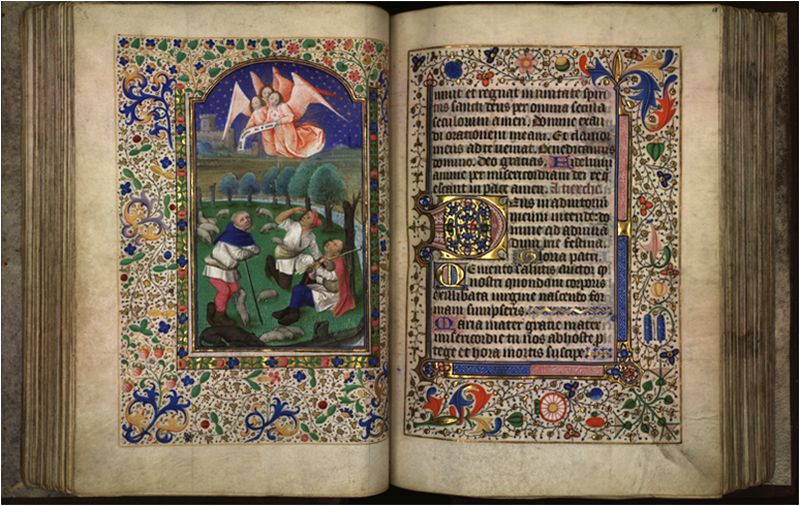 uiuit et regnat in unitate spiri
tus sancti deus per omnia secula
seculorum amen. Domine exau
di orationem meam. Et clamor
meus ad te ueniat. Benedicamus
domino. Deo gracias. Fidelium
anime per misericordiam dei req
escant in pace amen. A tierche
Deus in adiutoriū
meum intende: do
mine ad adiuuā
dum me festina.
Gloria patri.
Memento salutis auctor q
nostri quondam corporis
ex illibata uirgine nascendo for
mam sumpseris
Maria mater gratie mater
misericordie tu nos ab hoste p
tege et hora mortis suscipe